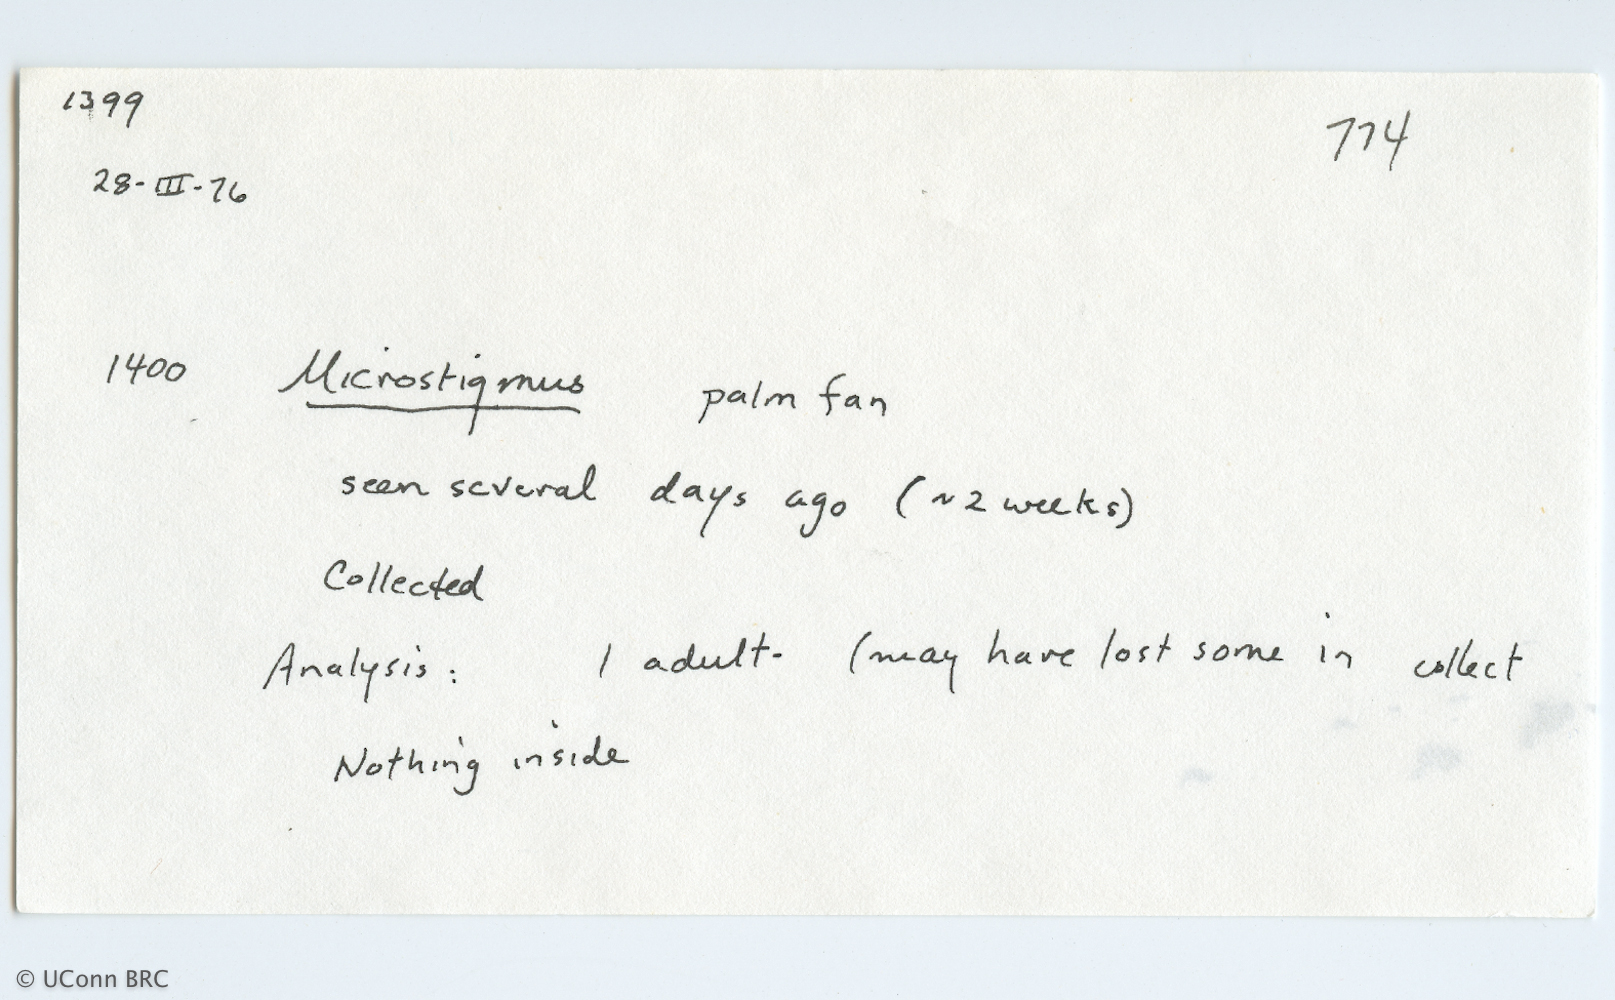 1399
774
28-III-76
1400 Microstigmus palm fan
seen several days ago (~2 weeks)
Collected
Analysis: 1 adult- (may have lost some in collect
Nothing inside
© UConn BRC